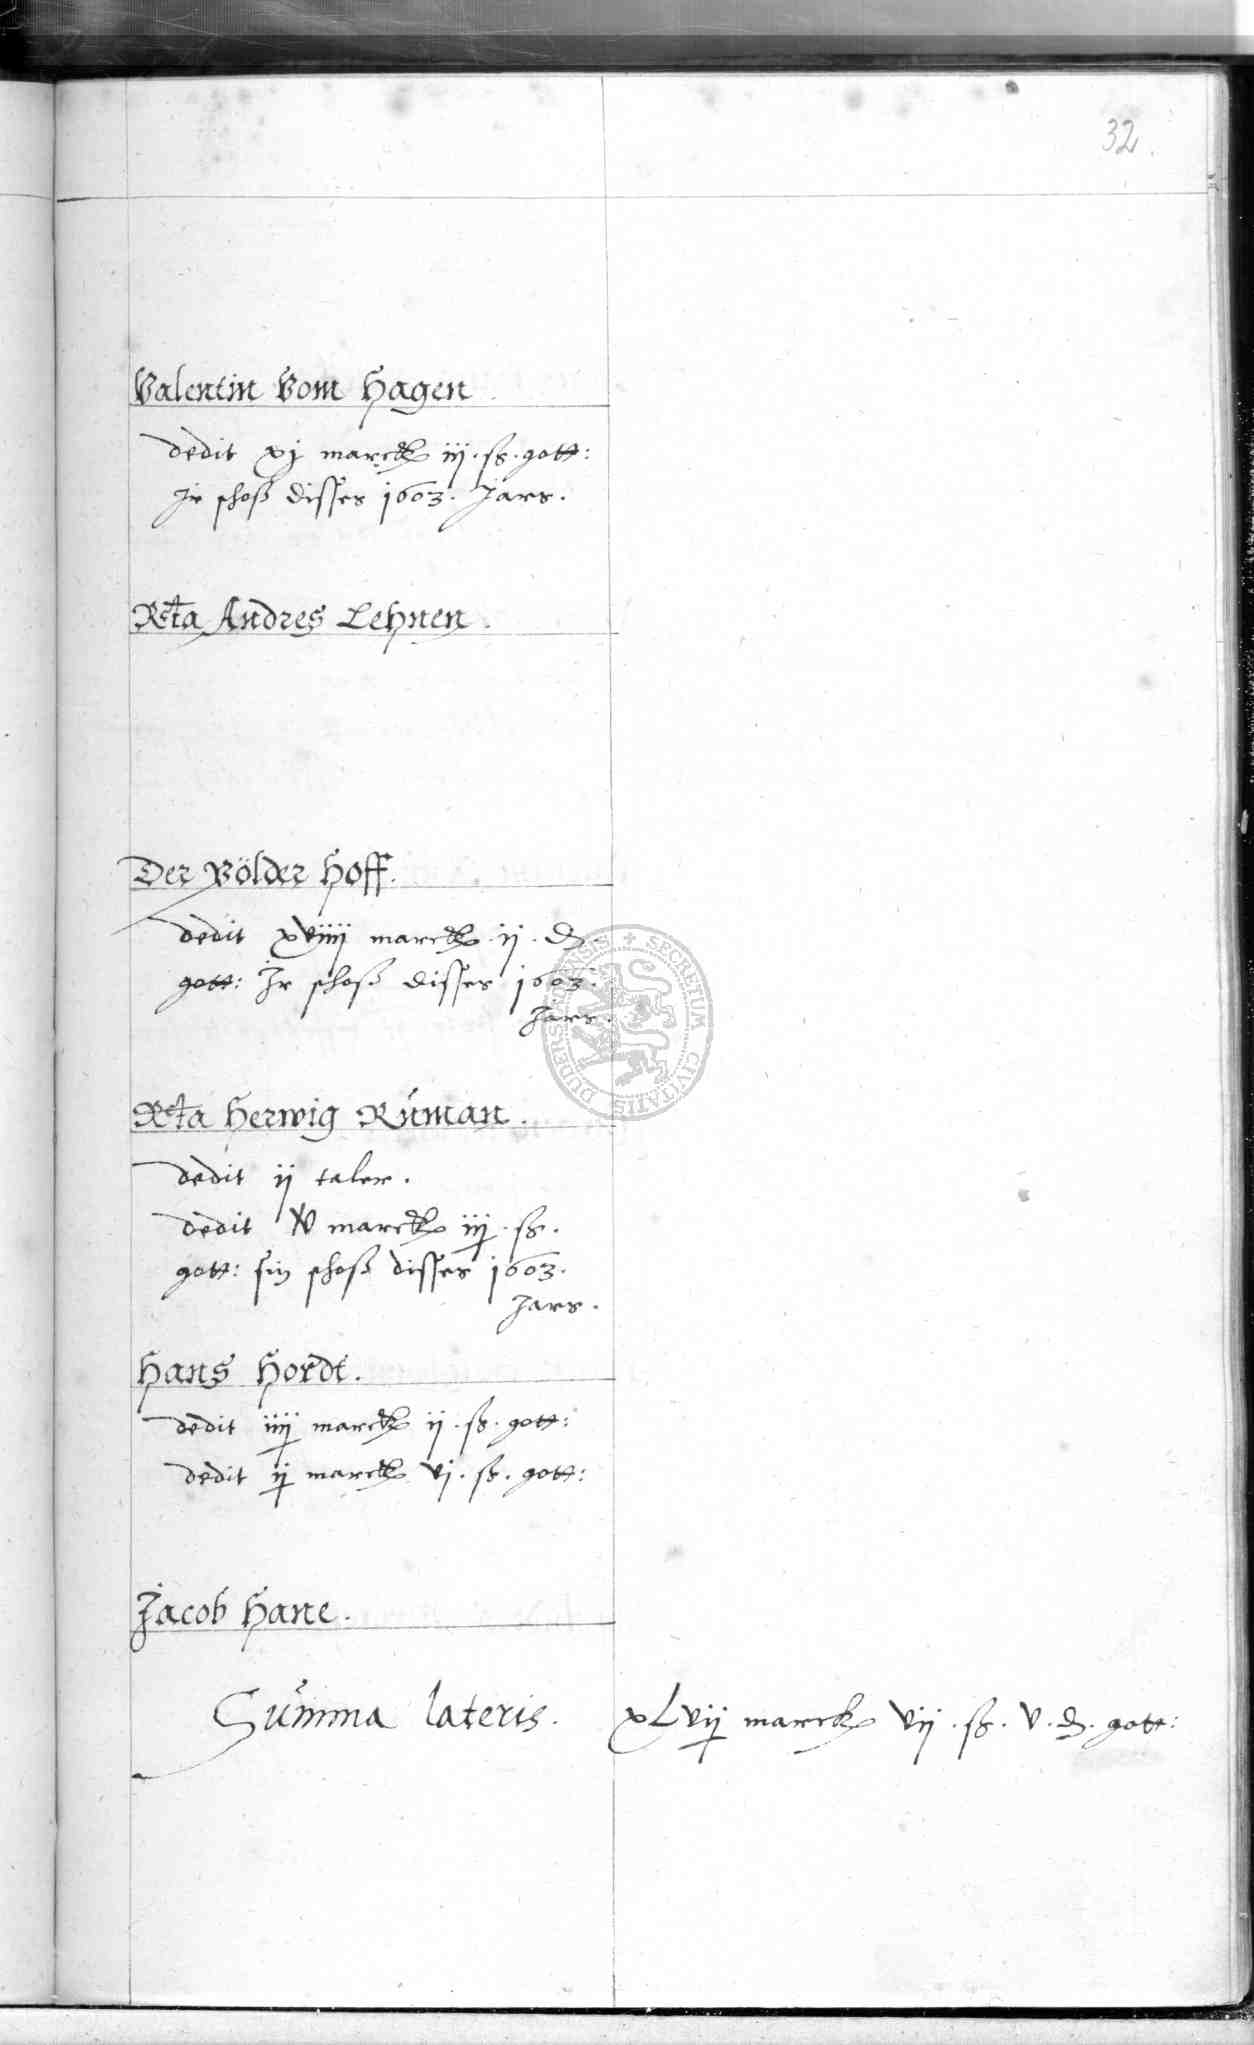 32.
Valentin Vom Hagen
dedit xj marck iij. ß. gott:
Ir schoß disses 1603. Jars.
Rcta Andres Lehnen.
Der Völder Hoff.
dedit xviiij marck. ij. d.
gott: Ir schoß disses 1603.
Jars.
Rcta Herwig Ruman.
dedit ij taler.
dedit v marck iij. ß.
gott: sin schoß disses 1603.
Jars.
Hans Hordt.
dedit iiij marck ij. ß. gott:
dedit ij marck vj. ß. gott:
Jacob Hane.
Summa lateris. xLvij marck vij. ß. v. d. gott:
SECRETUM CIVITATIS DUDERSTADENSIS